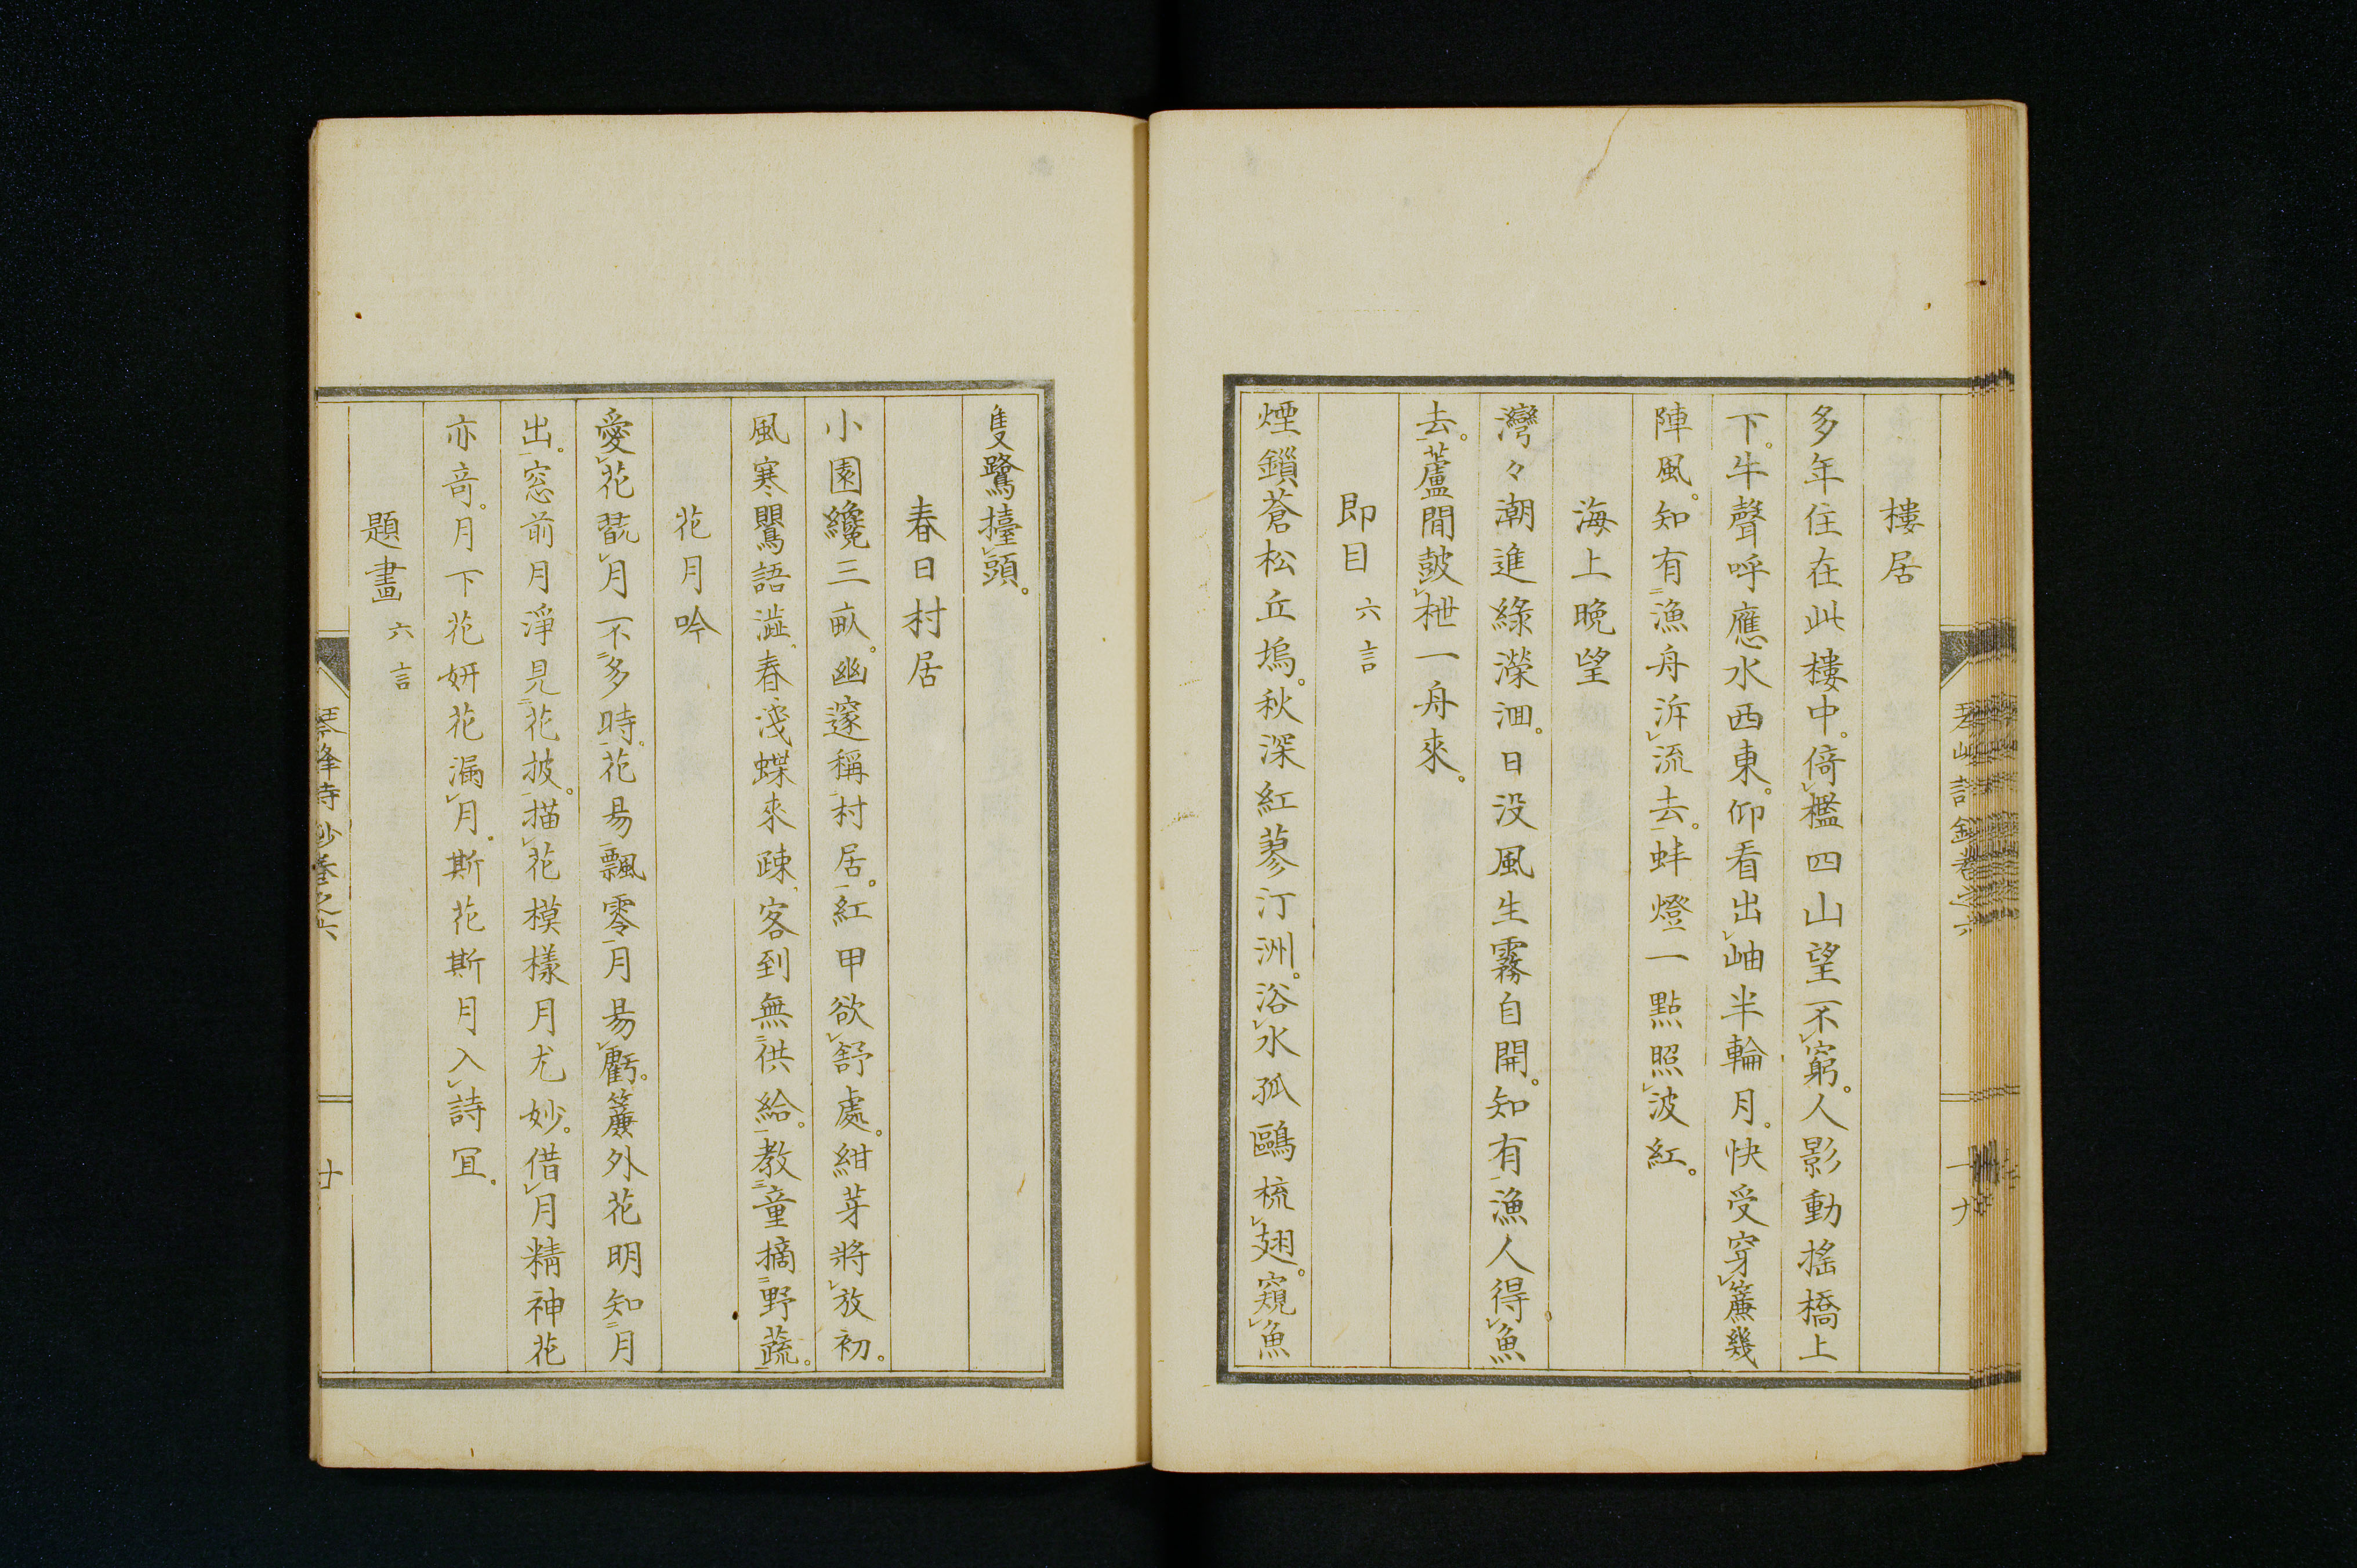 樓居
多年住在此樓中。倚檻四山望不窮。人影動搖橋上
下。牛聲呼應水西東。仰看出岫半輪月。快受穿簾幾
陣風。知有漁舟泝流去。蚌燈一點照波紅。
海上晚望
灣々潮進綠濚洄。日没風生霧自開。知有漁人得魚
去。蘆間鼓枻一舟來。
即目 六言
煙鎖蒼松丘塢。秋深紅蓼汀洲。浴水孤鷗梳翅。窺魚
隻鷺擡頭。
春日村居
小園纔三畝。幽邃稱村居。紅甲欲舒處。紺芽將放初。
風寒鸎語澁、春淺蝶來疎、客到無供給。教童摘野蔬。
花月吟
愛花翫月不多時。花易飄零月易虧。簾外花明知月
出。窓前月淨見花披。描花模樣月尤妙。借月精神花
亦竒。月下花妍花漏月。斯花斯月入詩宜。
題畫 六言
琴峰詩鈔卷之六
廿